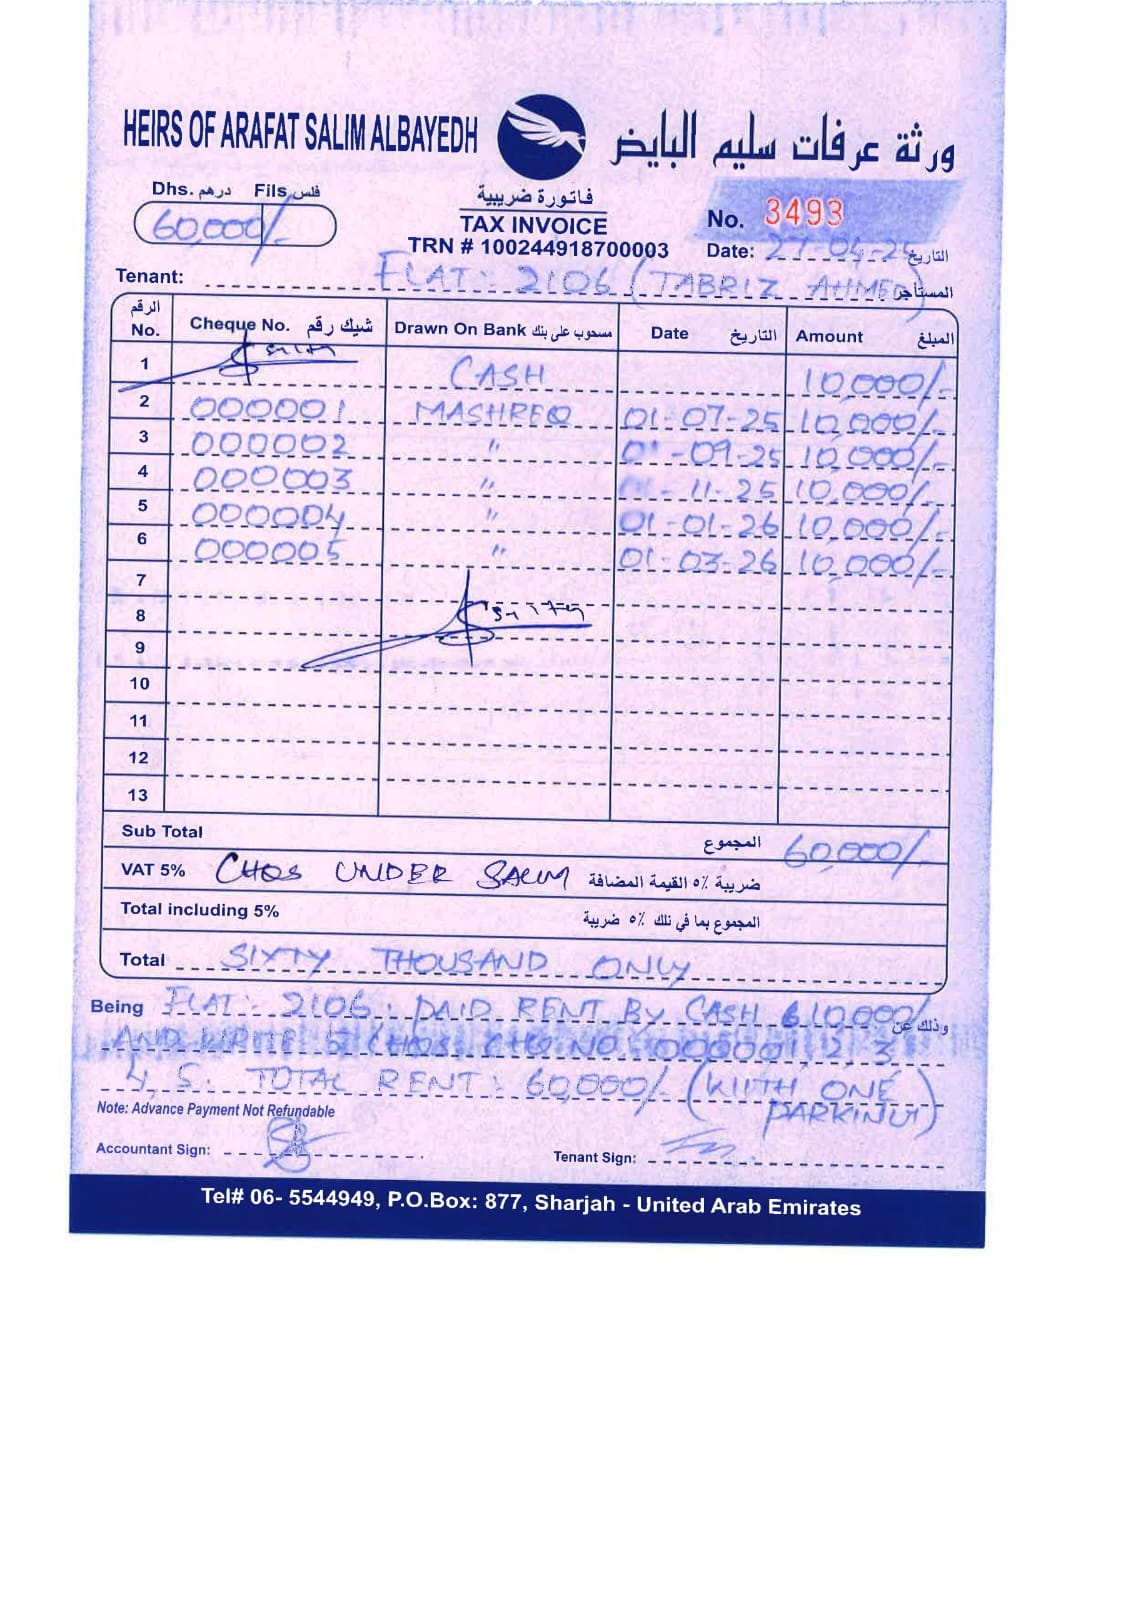 HEIRS OF ARAFAT SALIM ALBAYEDH ورثة عرفات سليم البايض
Dhs. درهم Fils فلس
60,000/-
فاتورة ضريبية
TAX INVOICE
TRN # 100244918700003
No. 3493
Date: 27-04-25 التاريخ
Tenant: FLAT: 2106 (TABRIZ AHMED) المستأجر
الرقم No. Cheque No. شيك رقم Drawn On Bank مسحوب على بنك Date التاريخ Amount المبلغ
1 CASH 10,000/-
2 000001 MASHREQ 01-07-25 10,000/-
3 000002 " 01-09-25 10,000/-
4 000003 " -11-25 10,000/-
5 000004 " 01-01-26 10,000/-
6 000005 " 01-03-26 10,000/-
7
8
9
10
11
12
13
Sub Total المجموع 60,000/-
VAT 5% CHQS UNDER SALIM ضريبة ٥٪ القيمة المضافة
Total including 5% المجموع بما في ذلك ٥٪ ضريبة
Total SIXTY THOUSAND ONLY
Being FLAT: 2106: PAID RENT BY CASH 10,000/- وذلك عن
AND WRITE 5 CHQS. CHQ NO: 000001, 2, 3
4, 5. TOTAL RENT: 60,000/- (WITH ONE
PARKING)
Note: Advance Payment Not Refundable
Accountant Sign:
Tenant Sign:
Tel# 06- 5544949, P.O.Box: 877, Sharjah - United Arab Emirates